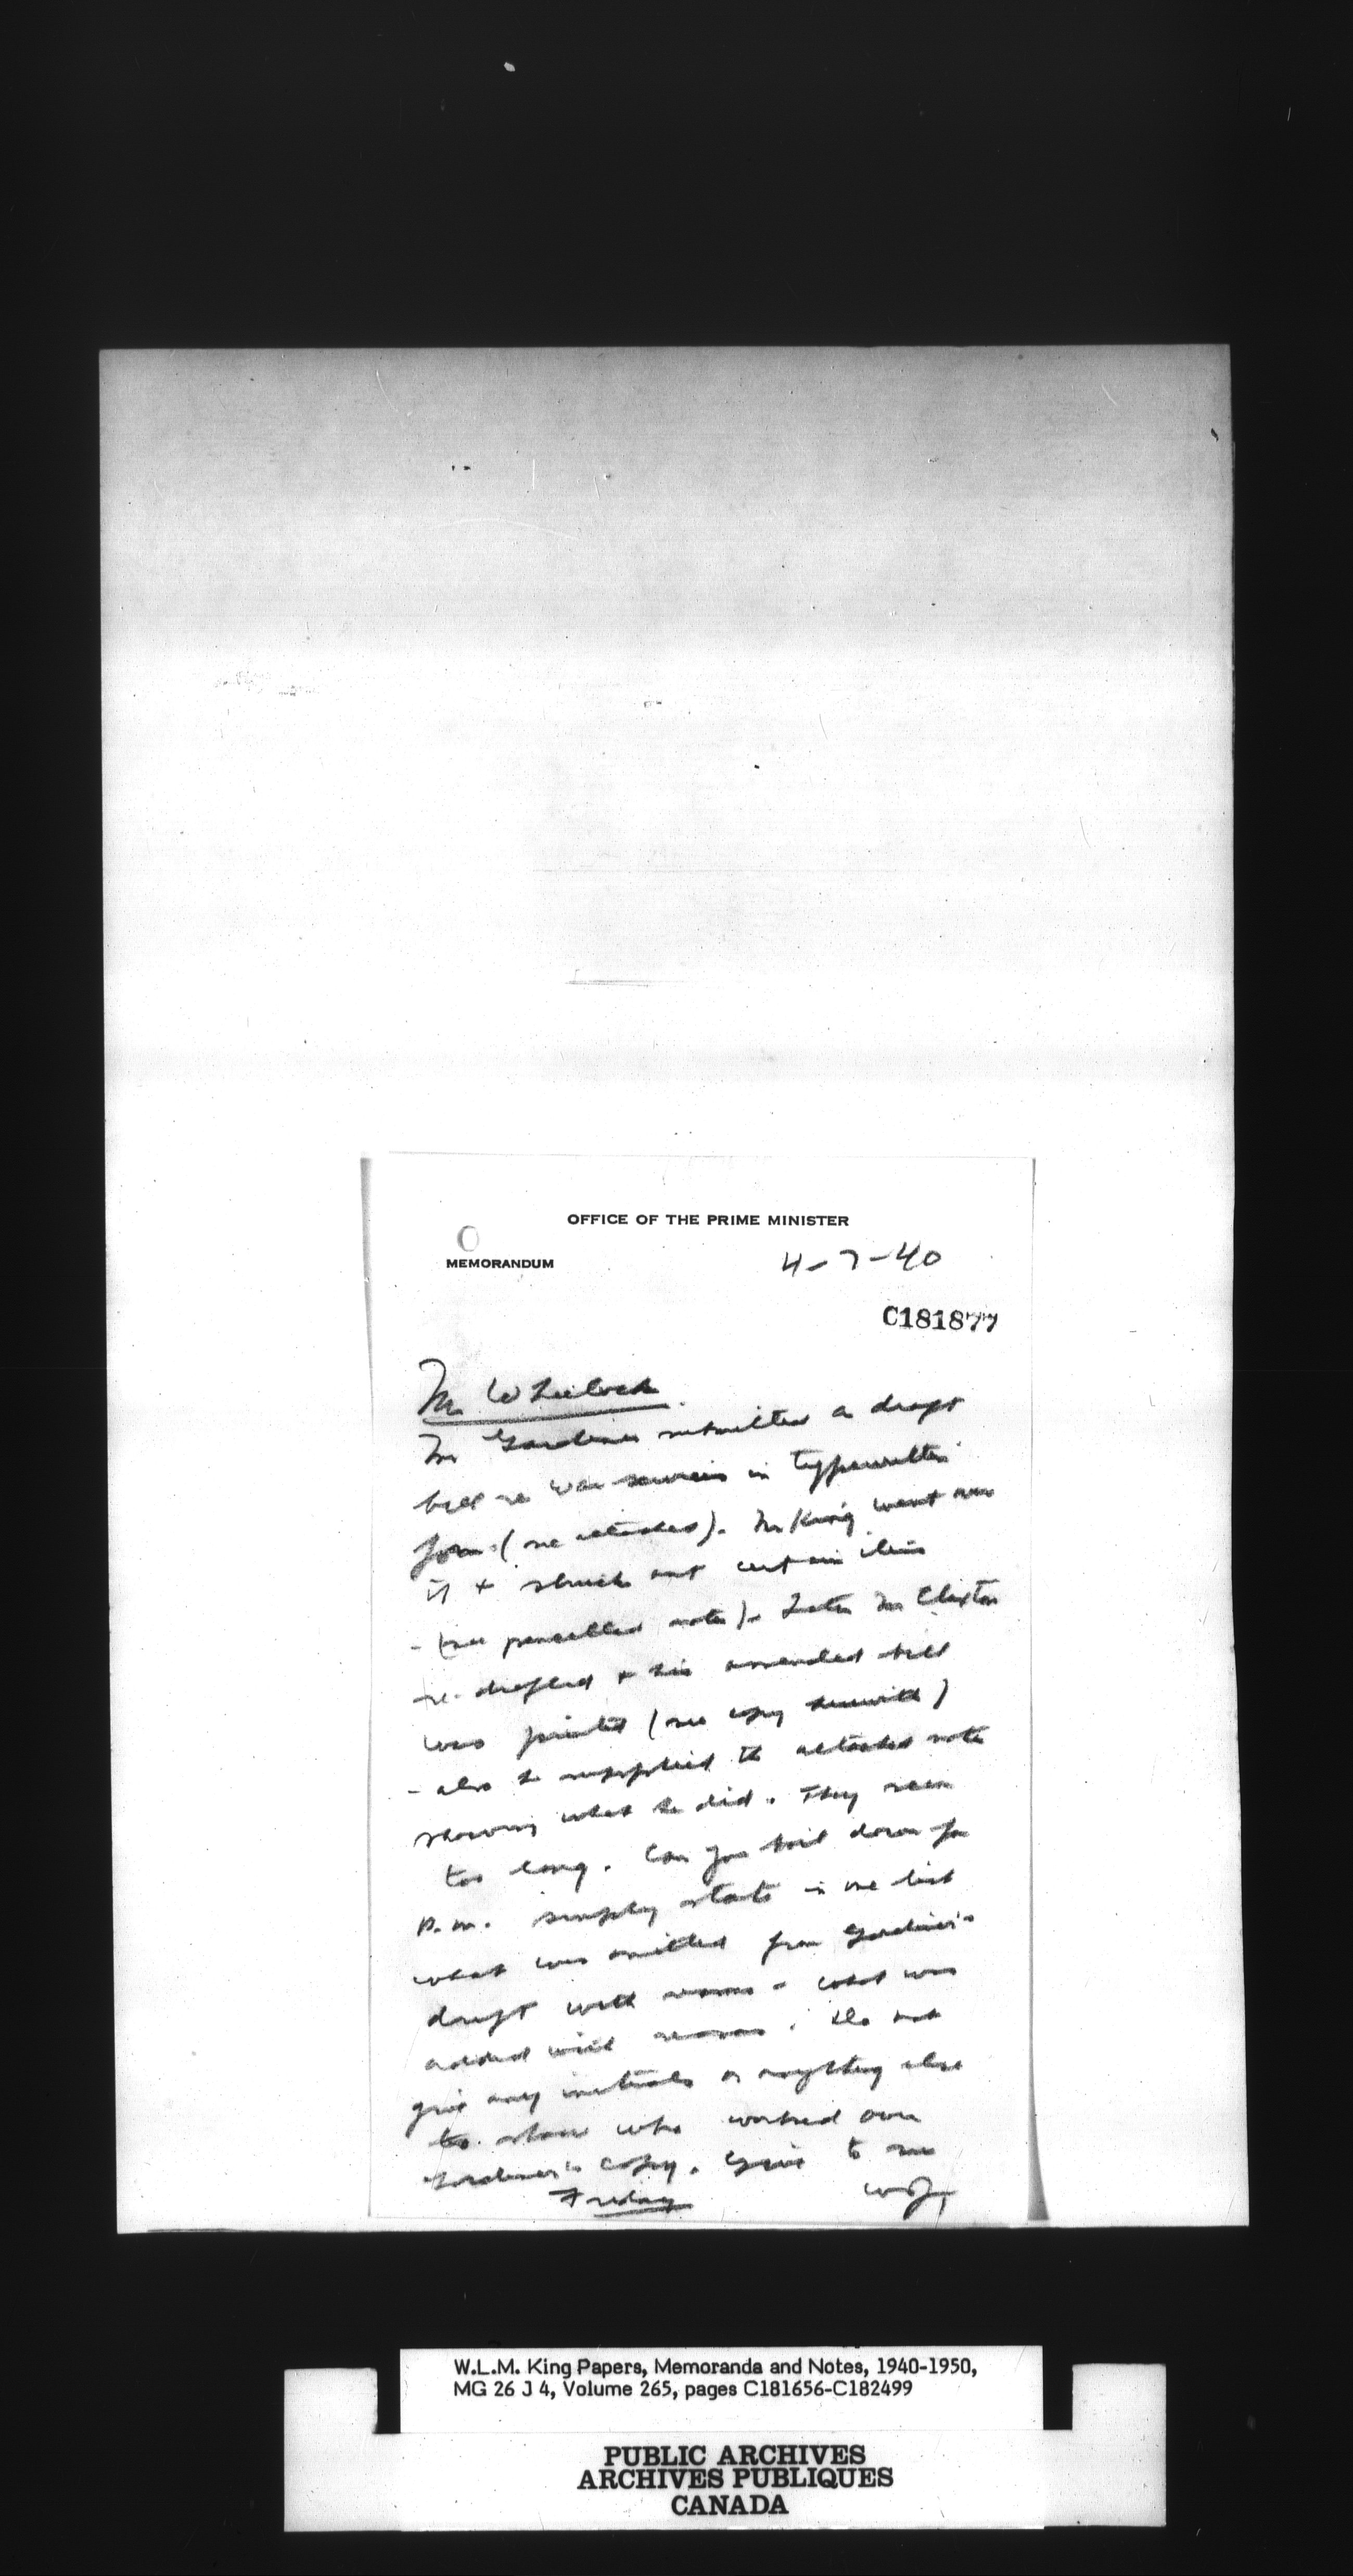 OFFICE OF THE PRIME MINISTER
MEMORANDUM
4-7-40
C181877
Mr Wheelock
Mr Gardiner submitted a draft
bill re War services in typewritten
form (see attached). Mr King went over
it + struck out certain items
- (see pencilled notes). Later Mr Claxton
re-drafted + his amended bill
was printed (see copy herewith)
- also he supplied the attached note
showing what he did. They seem
too long. Can you boil down for
P.M. simply state in one list
what was omitted from Gardiner's
draft with reasons - what was
added with reasons. Do not
give any initials or anything else
to show who worked over
Gardiner's copy. Give to me
Friday
W.L.M. King Papers, Memoranda and Notes, 1940-1950,
MG 26 J 4, Volume 265, pages C181656-C182499
PUBLIC ARCHIVES
ARCHIVES PUBLIQUES
CANADA